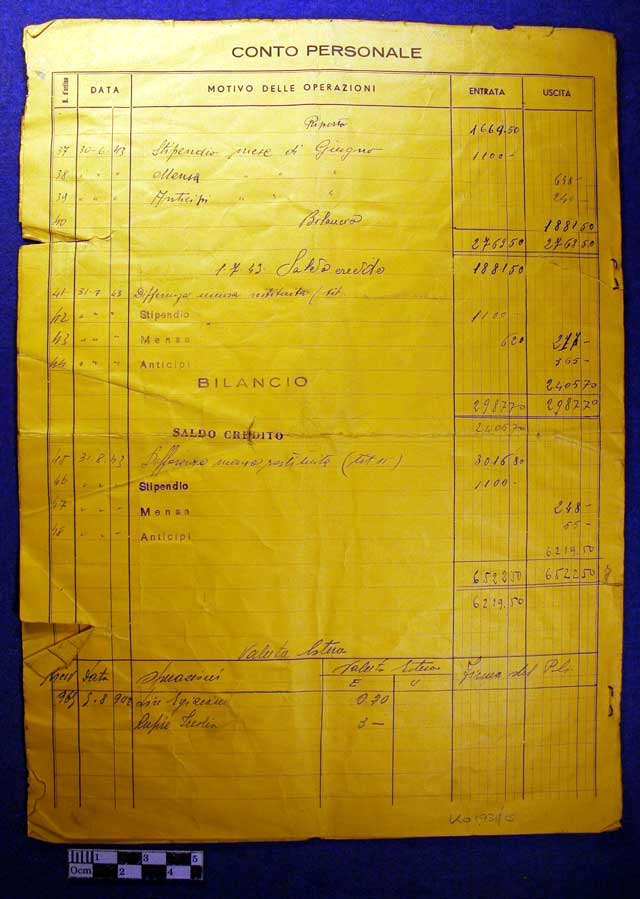 CONTO PERSONALE
N. d'ordine DATA MOTIVO DELLE OPERAZIONI ENTRATA USCITA
Riporto 1669.50
37 30-6-43 Stipendio mese di Giugno 1100-
38 " " " Mensa " " " 648-
39 " " " Anticipi " " " 240-
40 Bilancio 188150
276950 276950
1 7 43 Saldo credito 188150
41 31-7 43 Differenza mensa restituita
42 " " " Stipendio 1100-
43 " " " Mensa 277-
44 " " " Anticipi 305-
240570
BILANCIO
298770 298770
SALDO CREDITO 240570
45 31-8-43 Differenza mensa restituita 301680
46 " " " Stipendio 1100-
47 " " " Mensa 248-
48 " " " Anticipi 55-
6219.50
652250 652250
6219.50
Valuta Estera
Data Valuta Estera Firma del
E U
Lire Egiziane 0.70
Rupie 3-
0cm 1 2 3 4 5